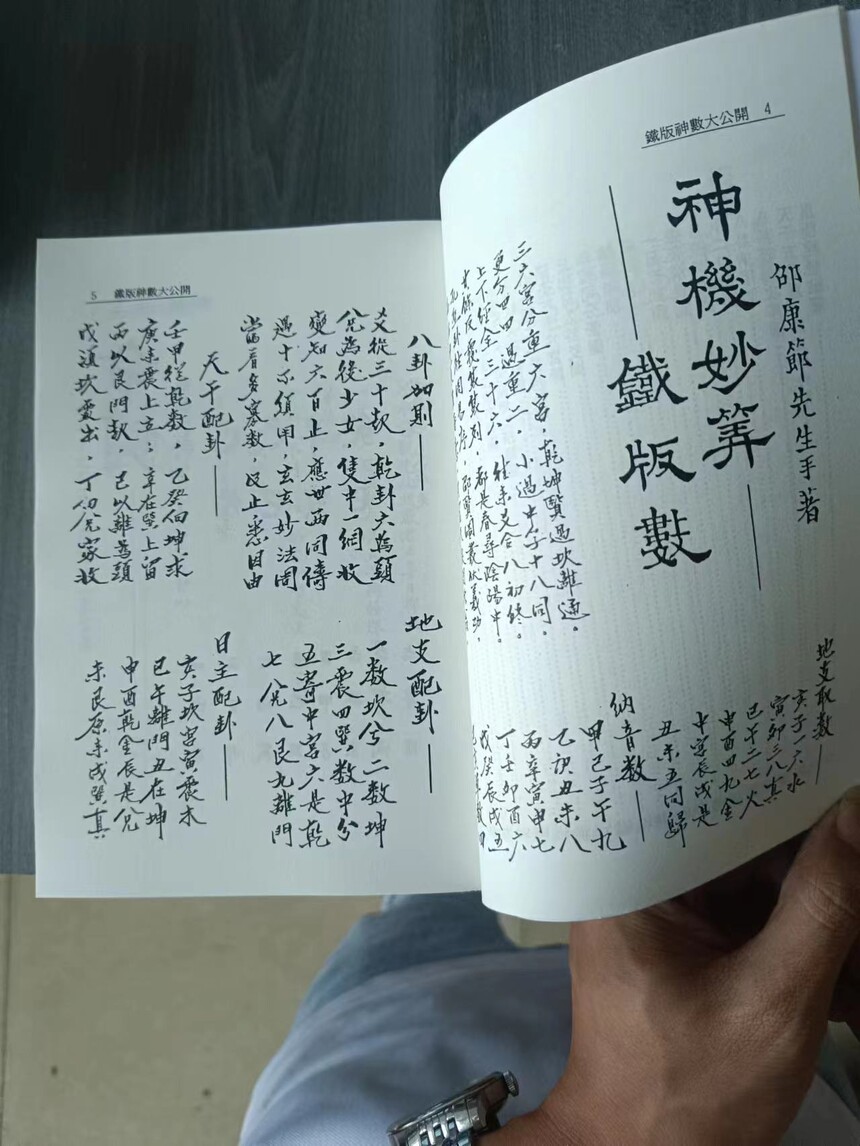 鐵版神數大公開 4
邵康節先生手著
神機妙算
鐵版數
三六宮分重六宮。乾坤賢過坎離通。
更分四四過重二。小過中孚十八同。
上下經全三十六。
都是春尋陰陽中。
地支取數
亥子一六水
寅卯三八真
巳午二七火
申酉四九金
中宮辰戌是
丑未五同歸
納音數
甲己子午九
乙庚丑未八
丙辛寅申七
丁壬卯酉六
戊癸辰戌五
5 鐵版神數大公開
八卦加則
爻從三十起，乾卦六為頭
兌為後少女，隻中一網收
變知六百止，應世兩同儔
遇十不須甲，玄玄妙法周
當看多寡數，及止悉因由
天干配卦
壬甲從乾數，乙癸向坤求
庚來震上立；辛在巽上留
丙以艮門起，己以離為頭
戊須坎處出，丁向兌家收
地支配卦
一數坎兮二數坤
三震四巽數中分
五寄中宮六是乾
七兌八艮九離門
日主配卦
亥子坎宮寅震木
巳午離門丑在坤
申酉乾金辰是兌
未艮原來戌巽真